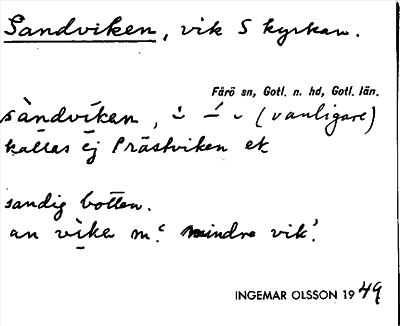 Sandviken, vik S kyrkan.
Fårö sn, Gotl. n. hd, Gotl. län.
sàndvíken, (vanligare)
kallas ej Prästviken ek
sandig botten.
an vika m. mindre vik.
INGEMAR OLSSON 1949